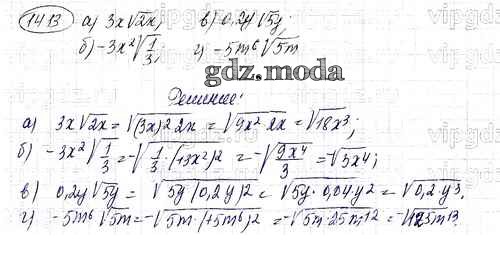 1413 а) 3x√2x; в) 0,2y√5y;
б) -3x²√1/3; г) -5m⁶√5m
gdz.moda
Решение:
а) 3x√2x = √(3x)²·2x = √9x²·2x = √18x³;
б) -3x²√1/3 = -√1/3·(+3x²)² = -√9x⁴/3 = -√3x⁴;
в) 0,2y√5y = √5y(0,2y)² = √5y·0,04y² = √0,2y³.
г) -5m⁶√5m = -√5m·(+5m⁶)² = -√5m·25m¹² = -√125m¹³.